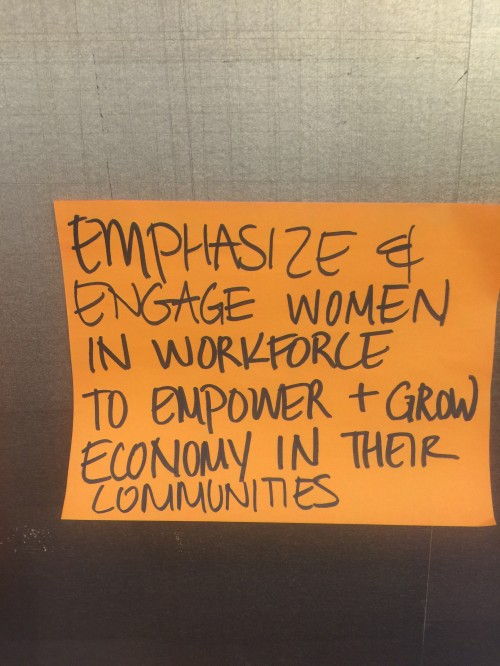 EMPHASIZE &
ENGAGE WOMEN
IN WORKFORCE
TO EMPOWER + GROW
ECONOMY IN THEIR
COMMUNITIES